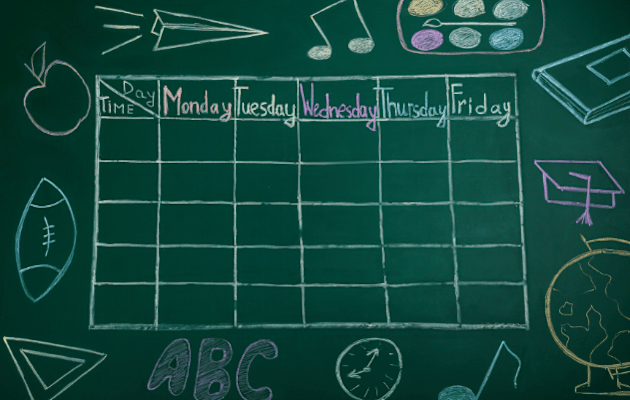 Day
TIME
Monday Tuesday Wednesday Thursday Friday
ABC